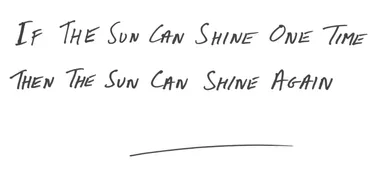 If The Sun Can Shine One Time
Then The Sun Can Shine Again